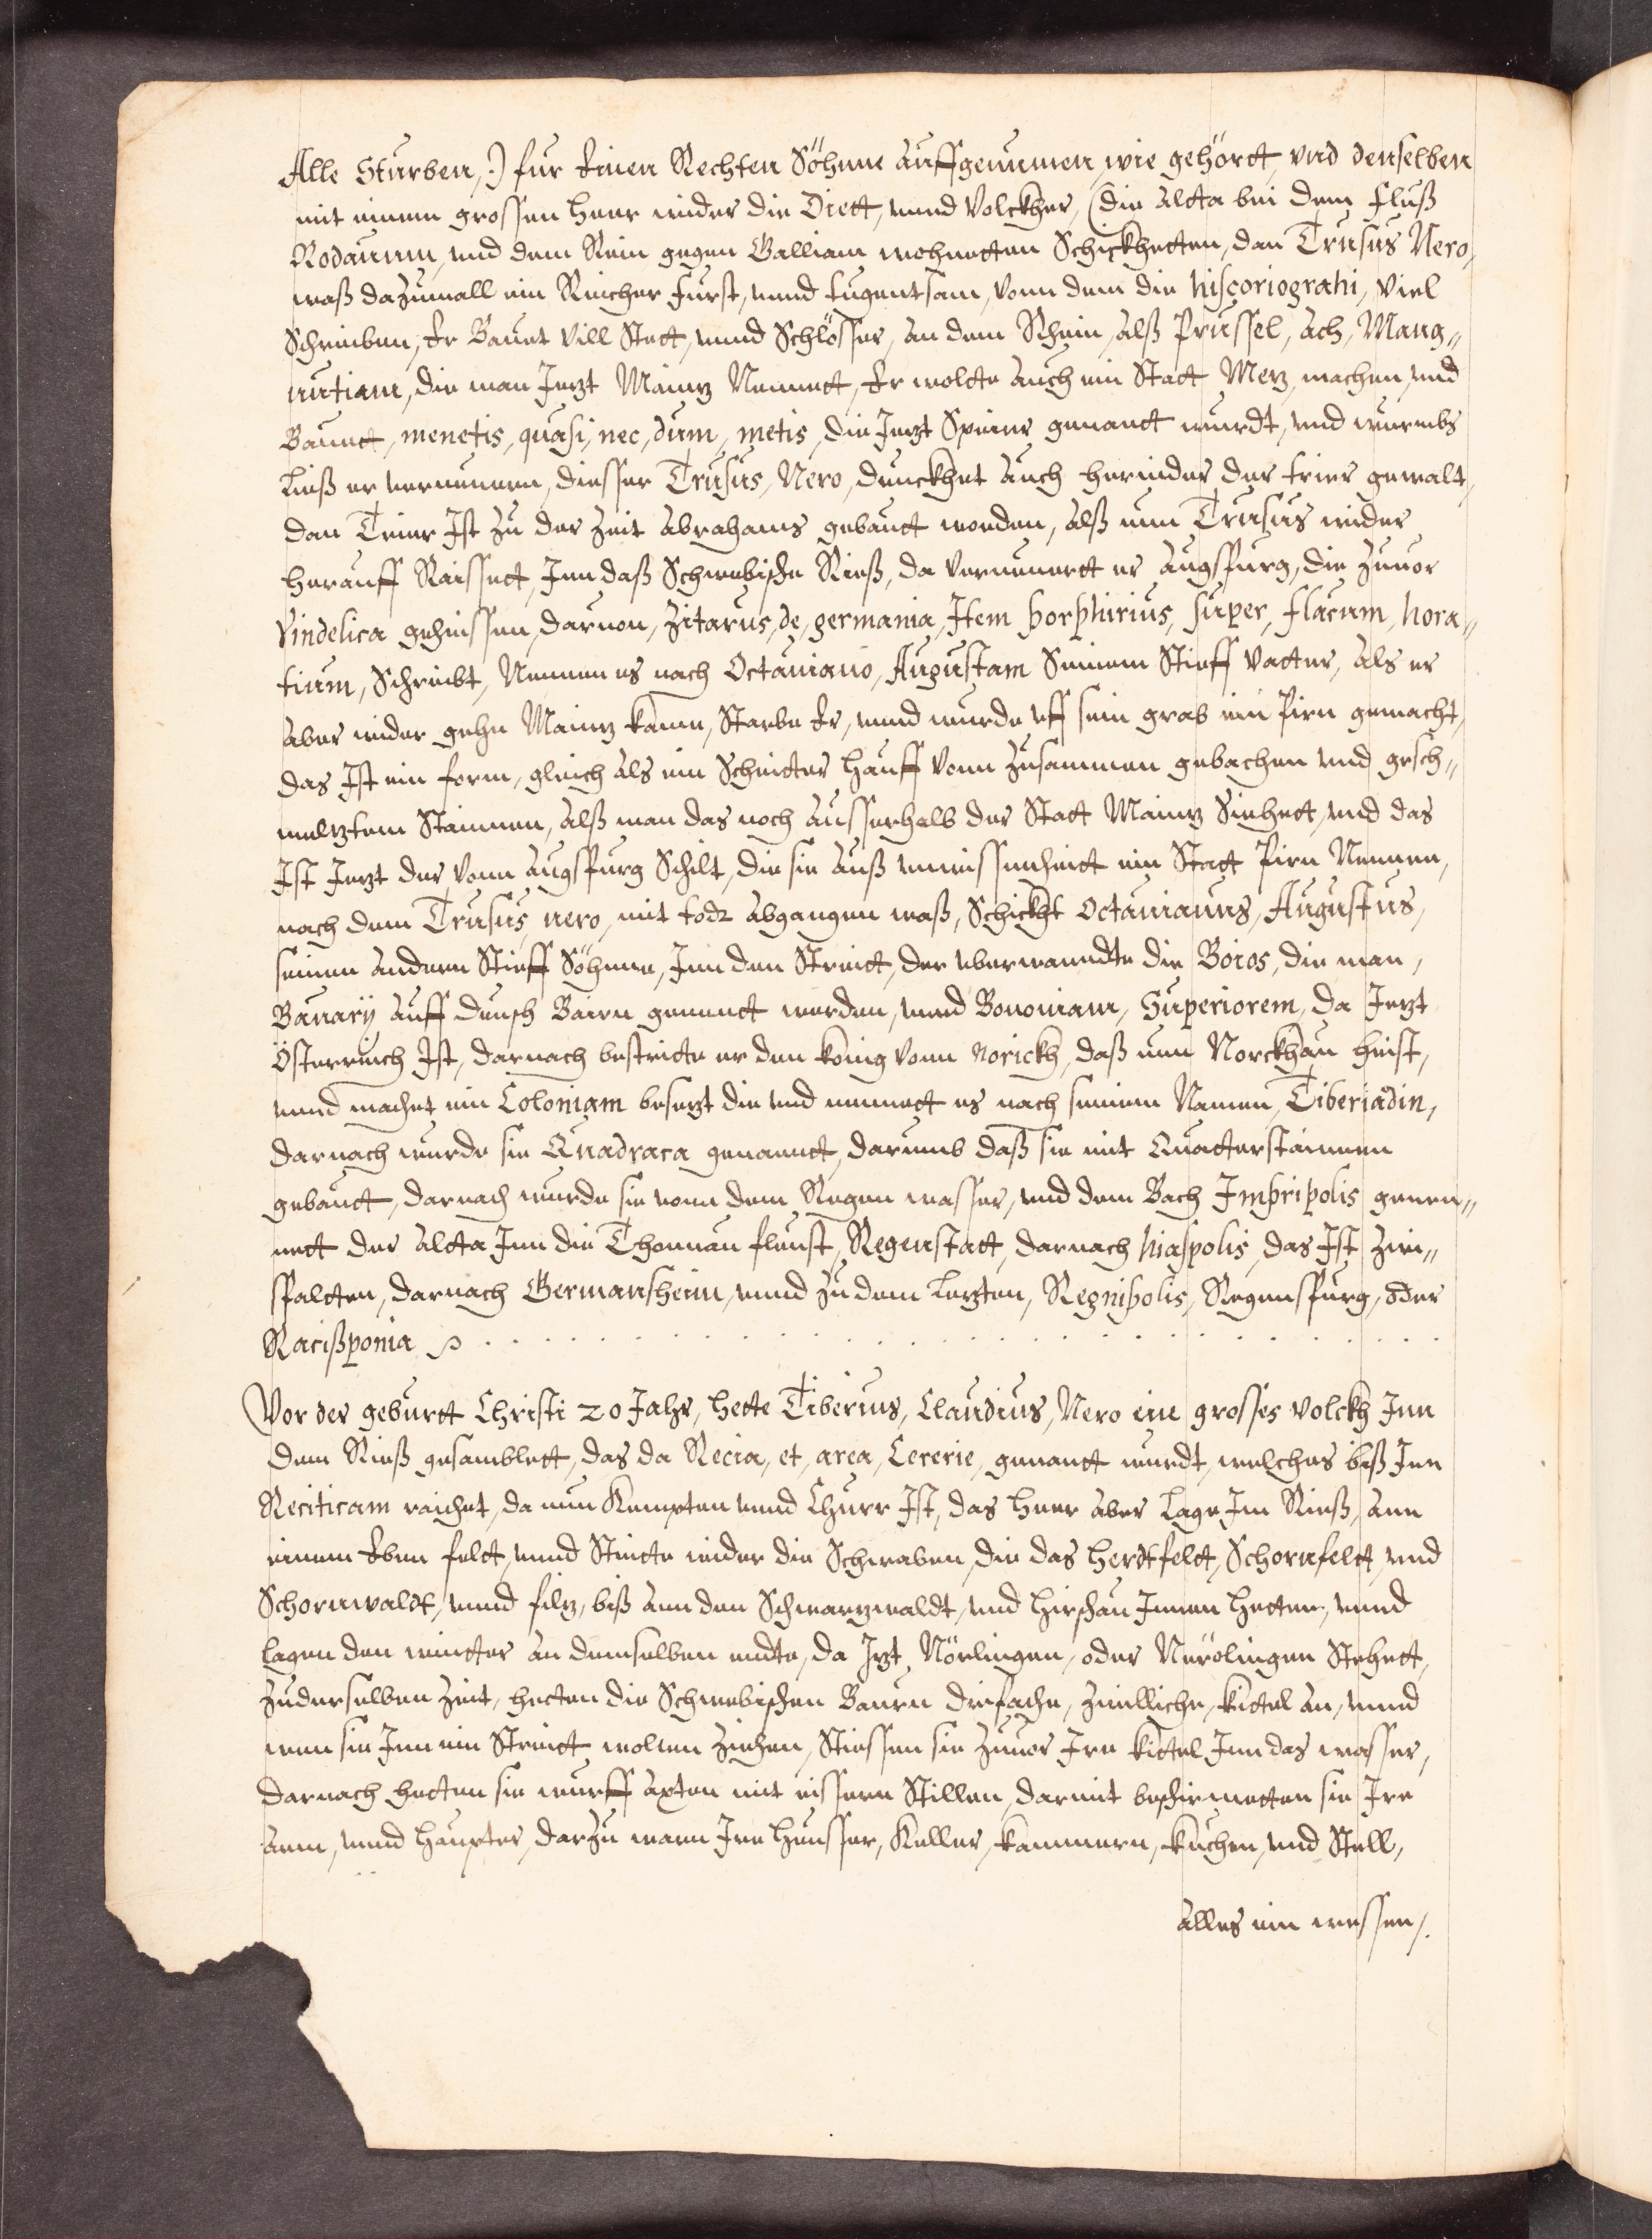 Alle Sturben,:) fur Einen Rechten Söhnne auffgenumen, wie gehörtt, vnd denselben
mit einem grossen heer wider die Diett, vnnd Volckher, (die altta bei dem fluß
Rodanum, vnd dem Rein gegen Galliam wohnetten Schickhetten, dan Trusus Nero,
waß dazumall ein Reicher furst, vnnd tugentsam, vonn dem die hiscoriograhi, viel
Schreiben, Er Bauet vill Stett, vnnd Schlösser, an dem Rhein, alß Prussel, ach, Mang„
nutiam, die man Jezt Maintz Nennett, Er wolte auch ein Statt Metz, machen, vnd
Bauett, menetis, quasi, nec, dum, metis, die Jezt Speier genantt wurdt, vnd wurmbs
Ließ er verneuern, diesser Trusus, Nero, druckhet auch herwider der trier gewalt,
dan Trier Jst zu der Zeit abrahams gebautt worden, alß nun Trusus wider
herauff Raissett, Jnn daß Schwebische Rieß, da verneuertt er augspurg, die zuuor
Vindelica geheissen, daruon, Zitarus, de, germania, Jtem porphirius, super, flacum, hora„
tium, Schreibt, Nennen es nach Octauiano, Augustam Seinem Stieff Vatter, als er
aber wider gehn Maintz kame, Starbe Er, vnnd wurde vff sein grab ein Pirn gemacht,
das Jst ein form, gleich als ein Scheitter hauff vonn zusammen gebachen vnd gesch„
meltztem Stainnen, alß man das noch ausserhalb der Statt Maintz Siehett, vnd das
Jst Jezt der, vonn augspurg Schilt, die sie auß vnwissenheitt ein Statt Pirn Nennen,
nach dem Trusus, nero, mit todt abgangen waß, Schickht Octauianus, Augustus,
seinen andern Stieff Söhnne, Jnn den Streitt, der vberwanndte die Boios, die man,
Bauarÿ auff deusch Bairn genentt werden, vnnd Bononiam, Superiorem, da Jezt
Österreich Jst, darnach bestritte er den könig vonn Norickh, daß nun Norckhau heist,
vnnd machet ein Coloniam besezt die vnd nennett es nach seinem Namen, Tiberiadin,
darnach wurde sie Quadraca genanntt, darumb daß sie mit Quatterstainnen
gebautt, darnach wurde sie vonn dem Regen wasser, vnd dem Bach Jmpripolis genen„
nett der altta Jnn die Thonnau fleust, Regenstatt, darnach hiaspolis, das Jst zwi„
spaltten, darnach Germansheim, vnnd zu dem lezten, Regnipolis, Regenspurg, oder
Racißponia
Vor der geburtt Christi 20 Jahr, hette Tiberius, Claudius, Nero ein grosses Volckh Jnn
dem Rieß gesamblett, das da Recia, et, area, Cererie, genantt wurdt, welches biß Jnn
Reciticam raichet, da nun Kempten vnnd Churr Jst, das heer aber Lage Jm Rieß, ann
einem Eben feltt, vnnd Stritte wider die Schwaben, die das herdtfeltt, Schornfeltt, vnd
Schornwaldt, vnnd filtz, biß ann den Schwartzwaldt, vnd hirschau Jnnen hetten, vnnd
lagen den wintter an demselben endte, da Jzt, Nörlingen, oder Nerolingen Stehett,
zuderselben Zeit, hetten die Schwebischen Bauren drifache, zwilliche, kittel an, vnnd
wen sie Jnn ein Streitt wolten ziehen, Stiessen sie zuuor Jre kittel Jnn das wasser,
darnach hetten sie wurff axten mit eissern Stillen, darmit beschirmetten sie Jre
arm, vnnd heupter, darzu waren Jre heusser, Keller, kammern, kuchen, vnd Stell,
alles ein wessen/.